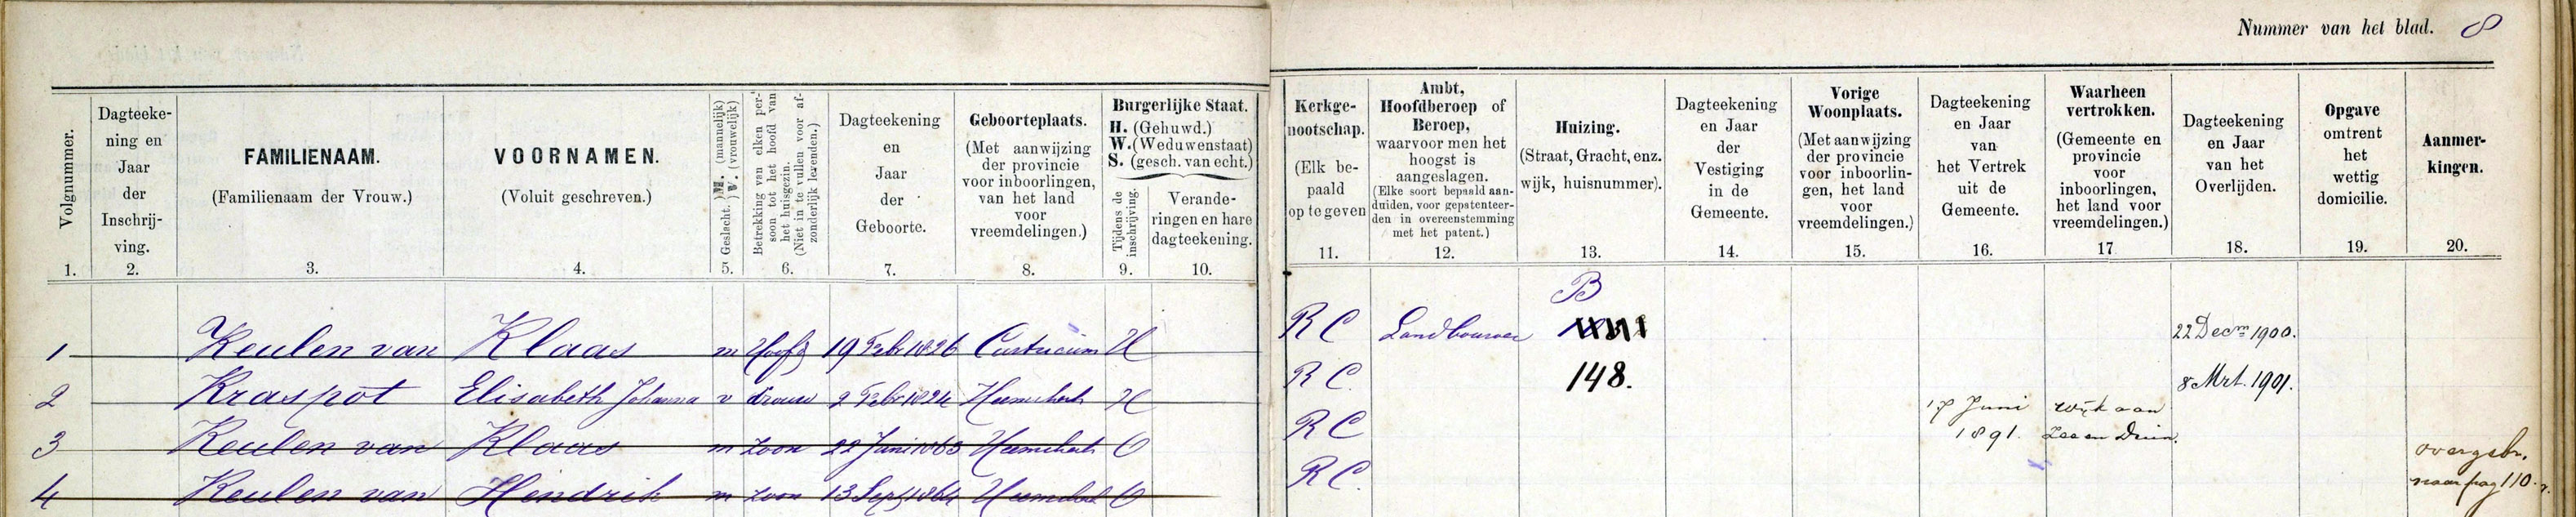 Nummer van het blad. 8
Volgnummer.
1.
Dagteeke-
ning en
Jaar
der
Inschrij-
ving.
2.
FAMILIENAAM.
(Familienaam der Vrouw.)
3.
VOORNAMEN.
(Voluit geschreven.)
4.
Geslacht. M. (mannelijk) V. (vrouwelijk)
5.
Betrekking van elken per-
soon tot het hoofd van
het huisgezin.
(Niet in te vullen voor af-
zonderlijk levenden.)
6.
Dagteekening
en
Jaar
der
Geboorte.
7.
Geboorteplaats.
(Met aanwijzing
der provincie
voor inboorlingen,
van het land
voor
vreemdelingen.)
8.
Burgerlijke Staat.
H. (Gehuwd.)
W. (Weduwenstaat)
S. (gesch. van echt.)
Tijdens de
inschrijving.
9.
Verande-
ringen en hare
dagteekening.
10.
Kerkge-
nootschap.
(Elk be-
paald
op te geven
11.
Ambt,
Hoofdberoep of
Beroep,
waarvoor men het
hoogst is
aangeslagen.
(Elke soort bepaald aan-
duiden, voor gepatenteer-
den in overeenstemming
met het patent.)
12.
Huizing.
(Straat, Gracht, enz.
wijk, huisnummer).
13.
Dagteekening
en Jaar
der
Vestiging
in de
Gemeente.
14.
Vorige
Woonplaats.
(Met aanwijzing
der provincie
voor inboorlin-
gen, het land
voor
vreemdelingen.)
15.
Dagteekening
en Jaar
van
het Vertrek
uit de
Gemeente.
16.
Waarheen
vertrokken.
(Gemeente en
provincie
voor
inboorlingen,
het land voor
vreemdelingen.)
17.
Dagteekening
en Jaar
van het
Overlijden.
18.
Opgave
omtrent
het
wettig
domicilie.
19.
Aanmer-
kingen.
20.
B
1 Keulen van Klaas m Hoofd 19 Febr 1826 Castricum H R C Landbouwer 22 Decm 1900.
2 Kraspot Elisabeth Johanna v vrouw 2 Febr 1824 Heemskerk H R C. 148. 8 Mrt. 1901.
3 Keulen van Klaas m zoon 22 Juni 1863 Heemskerk O R C 17 Juni 1891. Wijk aan Zee en Duin.
4 Keulen van Hendrik m zoon 13 Sept 1864 Heemskerk O R C. overgebr. naar pag 110.